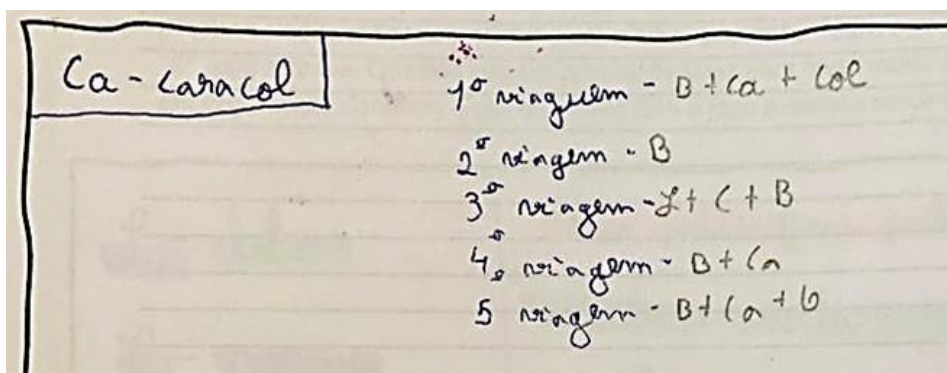 Ca - caracol
1º viaguem - B + Ca + Col
2º viagem - B
3º viagem - L + C + B
4º viagem - B + Ca
5 viagem - B + Ca + G